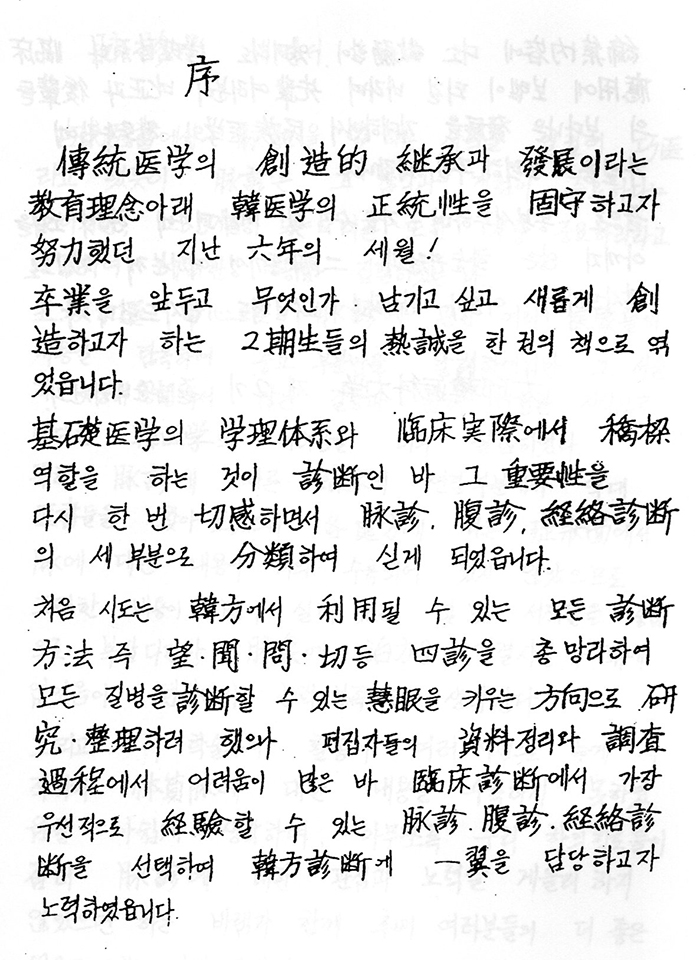 序
傳統医学의 創造的 継承과 發展이라는
教育理念아래 韓医学의 正統性을 固守하고자
努力했던 지난 六年의 세월!
卒業을 앞두고 무엇인가 남기고 싶고 새롭게 創
造하고자 하는 2期生들의 熱誠을 한 권의 책으로 엮
었읍니다.
基礎医学의 学理体系와 臨床実際에서 橋樑
역할을 하는 것이 診断인 바 그 重要性을
다시 한 번 切感하면서 脉診, 腹診, 経絡診断
의 세부분으로 分類하여 싣게 되었읍니다.
처음 시도는 韓方에서 利用될 수 있는 모든 診断
方法 즉 望·聞·問·切등 四診을 총망라하여
모든 질병을 診断할 수 있는 慧眼을 키우는 方向으로 研
究·整理하려 했으나 편집자들의 資料정리와 調査
過程에서 어려움이 많은 바 臨床診断에서 가장
우선적으로 経験할 수 있는 脉診·腹診·経絡診
断을 選択하여 韓方診断에 一翼을 담당하고자
노력하였읍니다.